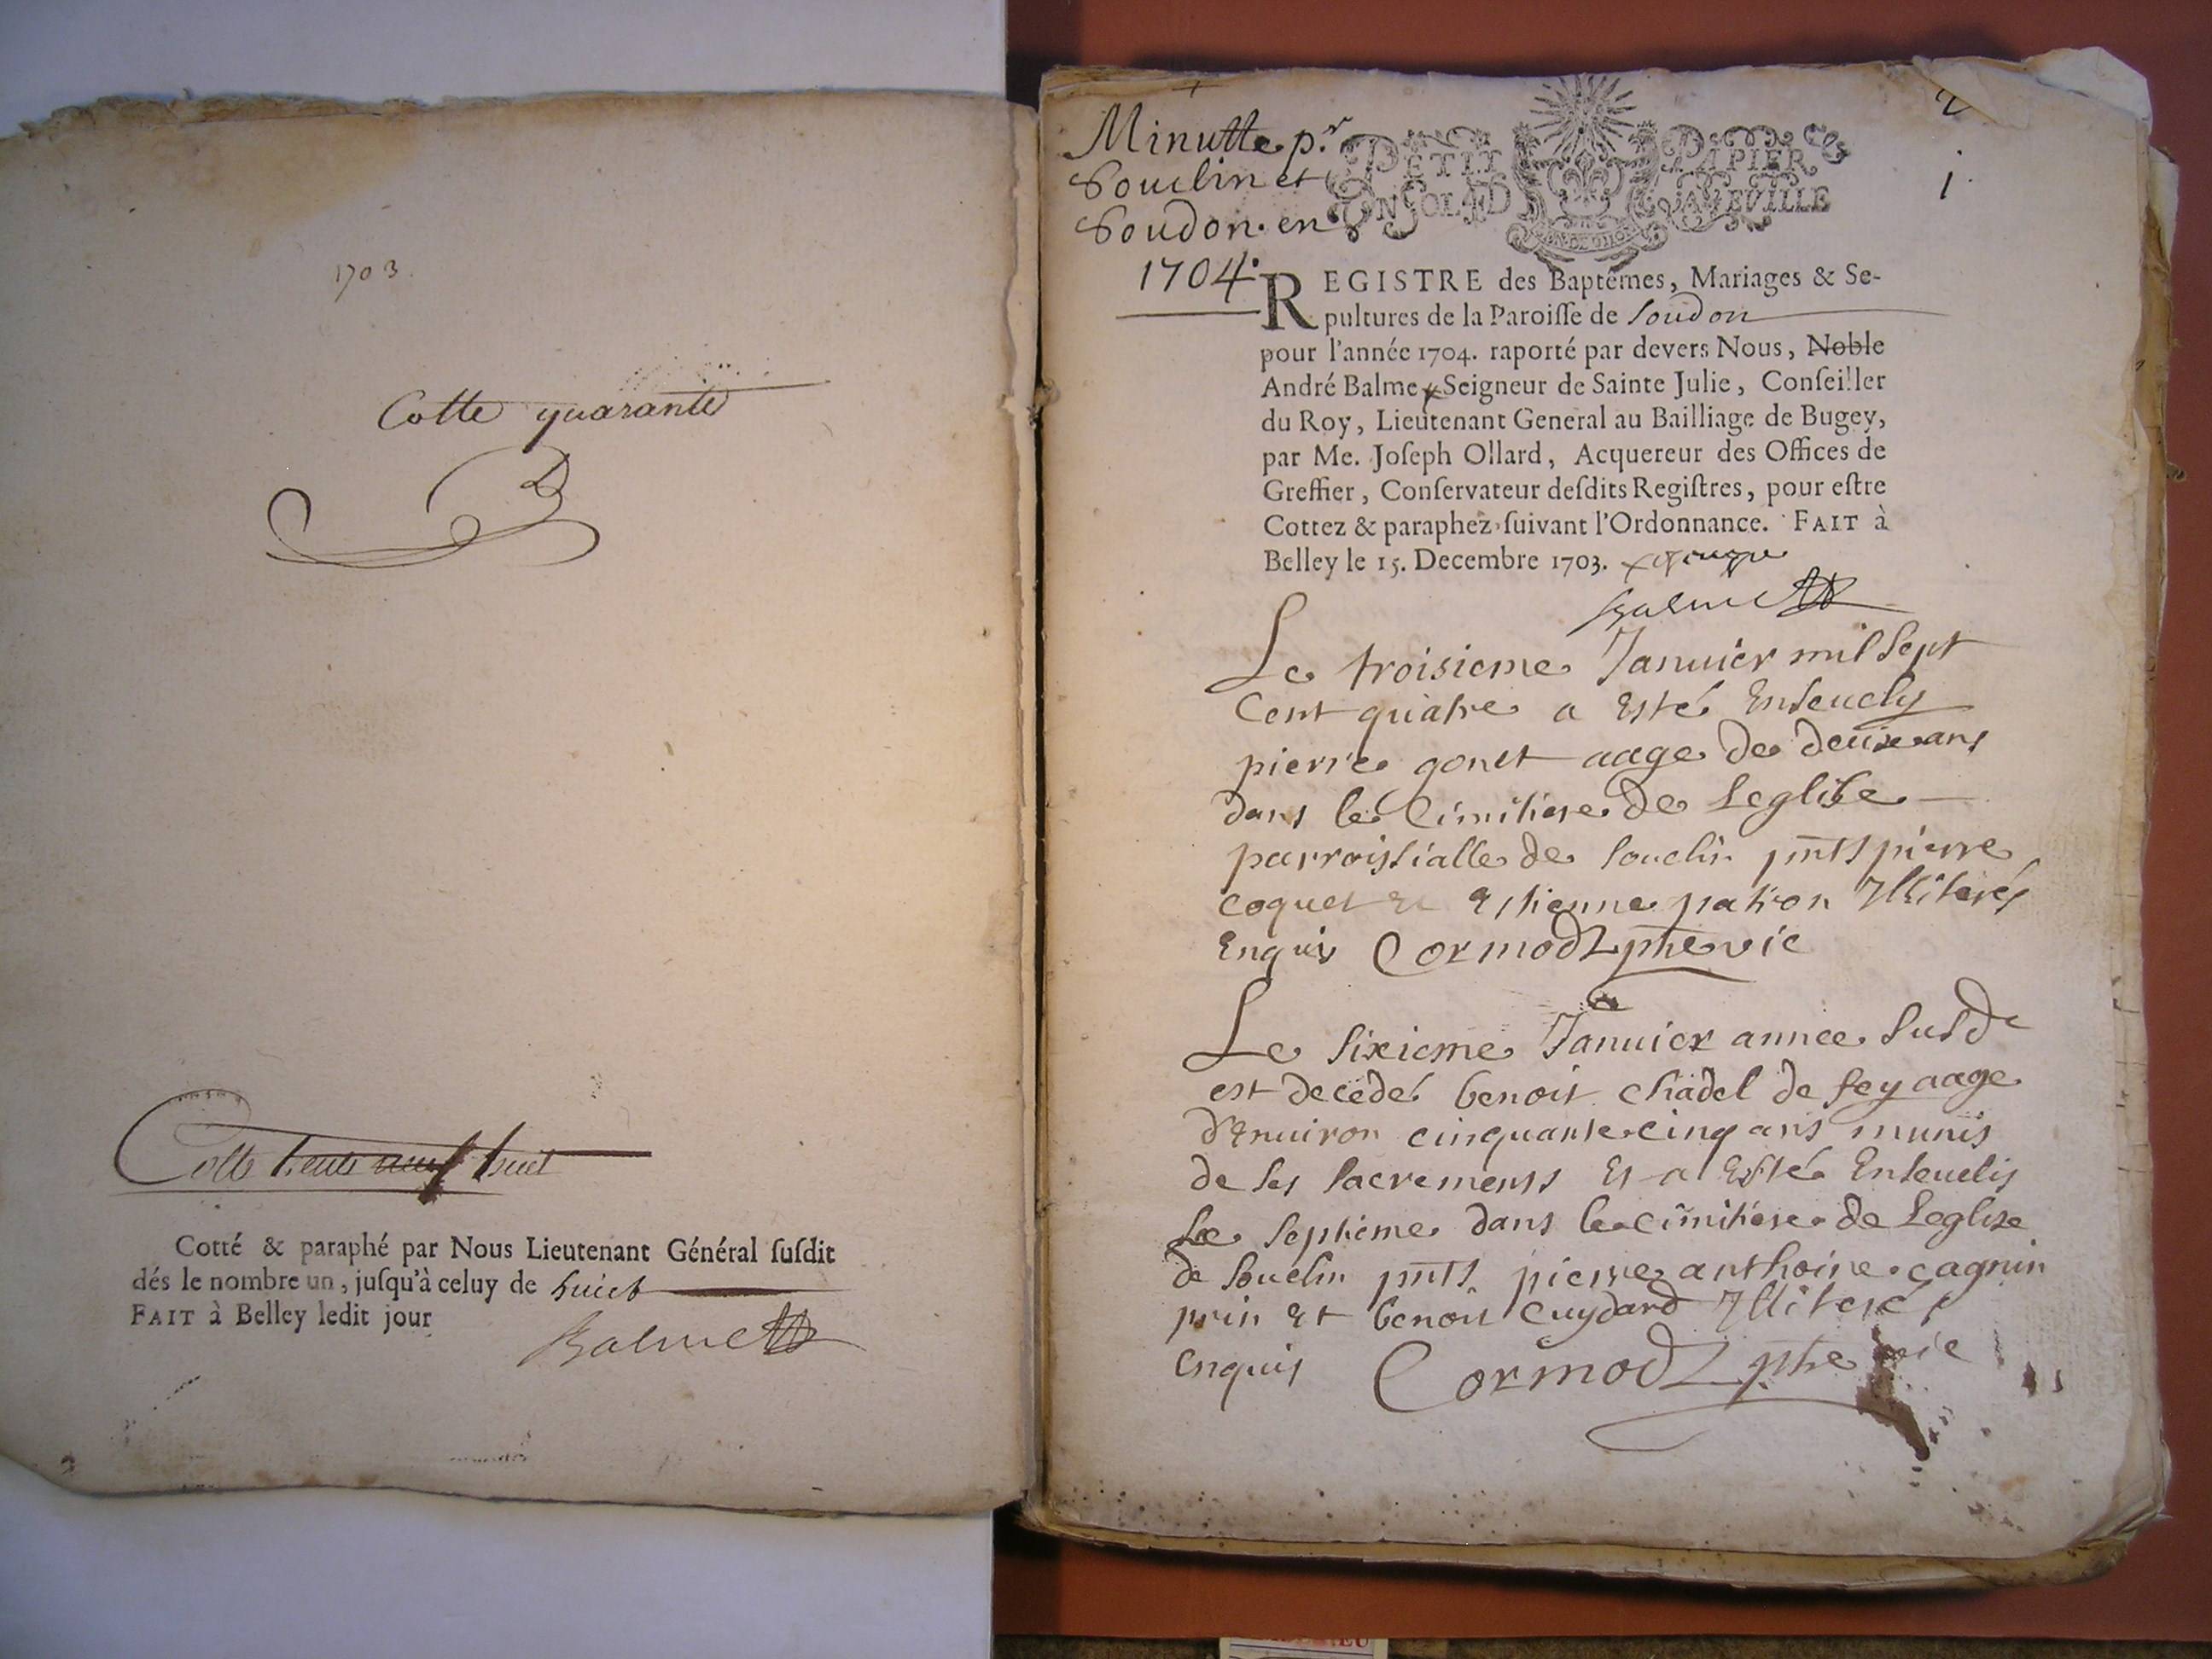 1703.
Cotte quarante
Cotte trente neuf huict
Cotté & paraphé par Nous Lieutenant Général susdit
dés le nombre un, jusqu'à celuy de huict
FAIT à Belley ledit jour
Balme
2
1
Minutte pr
Souclin et
Soudon. en
1704.
PETIT PAPIER
UN SOL 4 D LA FEUILLE
REGISTRE des Baptêmes, Mariages & Se-
pultures de la Paroisse de Soudon
pour l'année 1704. raporté par devers Nous, Noble
André Balme, Seigneur de Sainte Julie, Conseiller
du Roy, Lieutenant General au Bailliage de Bugey,
par Me. Joseph Ollard, Acquereur des Offices de
Greffier, Conservateur desdits Registres, pour estre
Cottez & paraphez suivant l'Ordonnance. FAIT à
Belley le 15. Decembre 1703.
Balme
Le troisieme Januier mil sept
Cent quatre a Esté Enseuely
pierre gonet aage de deux ans
dans le Cimitiere de Leglise
parroissialle de souclin pnts pierre
coquet Et Estienne patron Illiterés
Enquis Cormod ptre vic
Le sixieme Januier annee susd
est decedé benoit chadel de fey aage
d'Enuiron cinquante cinq ans munis
de ses sacrements Et a Esté Enseuelis
Le septieme dans le cimitiere de Leglise
de souclin pnts pierre anthoine cagnin
prin Et benoit Cuydard Illiterés
Enquis Cormod ptre vic